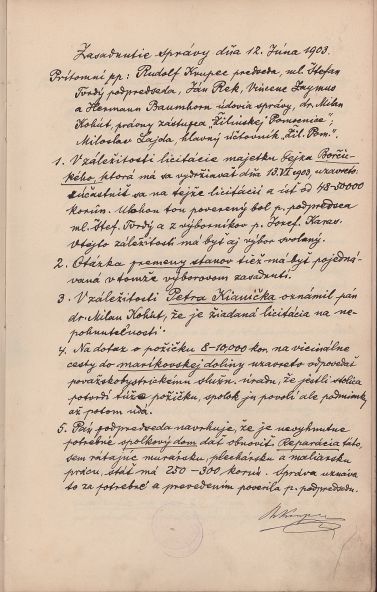 Zasadnutie správy dňa 12. Júna 1903.
Prítomní pp: Rudolf Krupec predseda, ml. Štefan
Tvrdý podpredseda, Ján Rek, Vincenc Zaymus
a Hermann Baumhorn údovia správy, dr. Milan
Kohút, právny zástupca Žilinskej "Pomocnice",
Miloslav Lajda, hlavný účtovník "Žil. Pom.".
1. V záležitosti licitácie majetku Fejka
kého, ktorá má sa vydržiavať dňa 13.VI 1903, uzaveto
súčastniť sa na tejže licitácii a ísť od 48-50000
korún. Úlohou tou poverený bol p. podpredseda
ml. Štef. Tvrdý a z výborníkov p. Jozef Karas.
V tejto záležitosti má byť aj výbor svolaný.
2. Otázka premeny stanov tiež má byť pojedná-
vaná v tomže výborovom zasadnutí.
3. V záležitosti Petra oznámil pán
dr. Milan Kohút, že je žiadaná licitácia na ne-
pohnuteľnosti.
4. Na dotaz o požičku 8-10000 kor. na vicinálne
cesty do maríkovskej doliny uzaveto odpovedať
považskobystrickému služn. úradu, že jestli stolica
potvrdí túže požičku, spolok ju povolí ale podmienky
až potom udá.
5. Pán podpredseda navrhuje, že je nevyhnutne
potrebné spolkový dom dať obnoviť. Reparácia táto,
sem rátajúc murársku, plechársku a maliarsku
prácu, státť má 250-300 korún. Správa uznáva
to za potrebné a prevedením poverila p. podpredsedu.